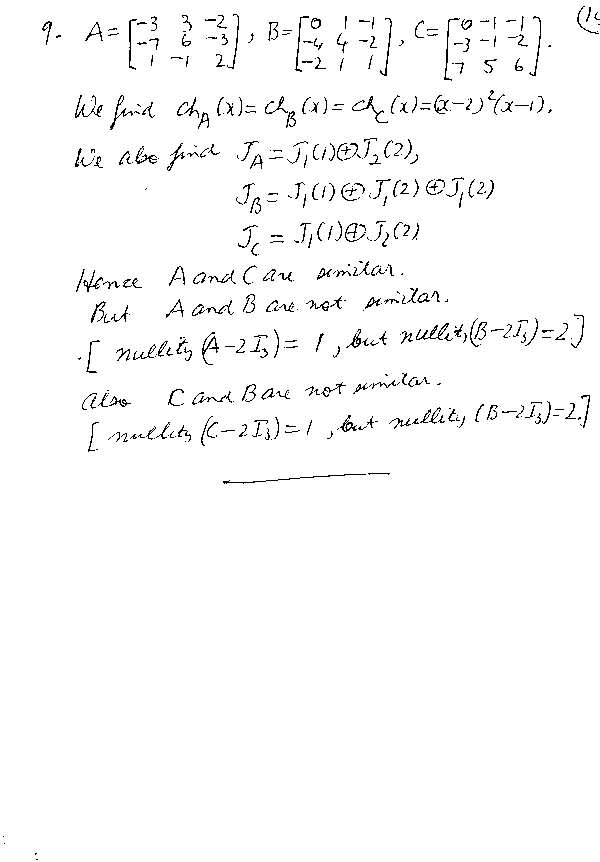 9. A = [-3 3 -2; -7 6 -3; 1 -1 2], B = [0 1 -1; -4 4 -2; -2 1 1], C = [0 -1 -1; -3 -1 -2; 7 5 6].
We find ch_A(x) = ch_B(x) = ch_C(x) = (x-2)^2(x-1).
We also find J_A = J_1(1) ⊕ J_2(2),
J_B = J_1(1) ⊕ J_1(2) ⊕ J_1(2)
J_C = J_1(1) ⊕ J_2(2)
Hence A and C are similar.
But A and B are not similar.
[ nullity (A-2I_3) = 1, but nullity (B-2I_3) = 2.]
Also C and B are not similar.
[ nullity (C-2I_3) = 1, but nullity (B-2I_3) = 2.]